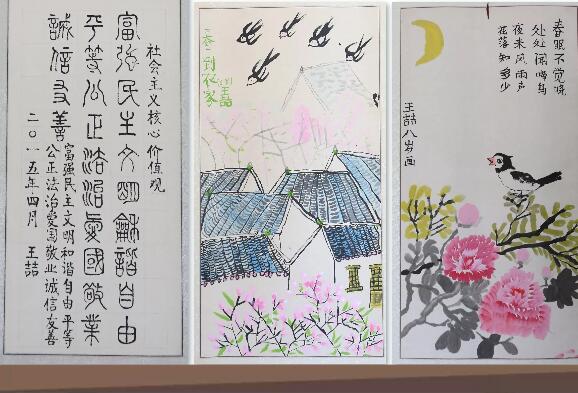 社会主义核心价值观
富强民主文朙龢諧自由
平等公正法治愛國敬業
誠信友善
富强民主文明和谐自由平等
公正法治爱国敬业诚信友善
二〇一五年四月 王喆
春到农家
王喆
春眠不觉晓
处处闻啼鸟
夜来风雨声
花落知多少
王喆八岁画